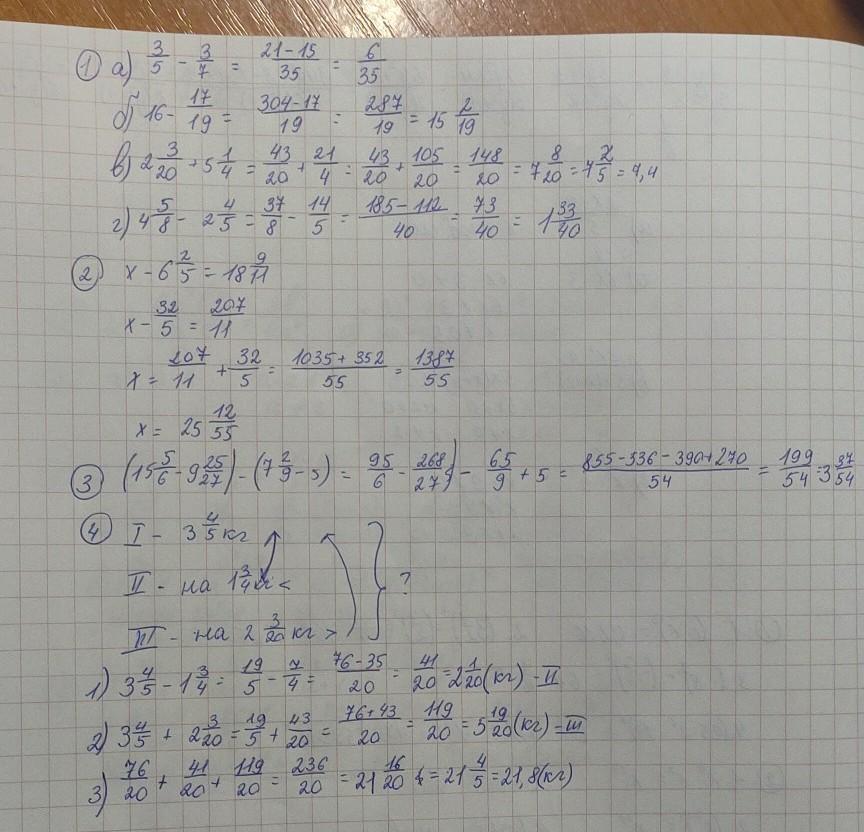 ① а) 3/5 - 3/7 = (21-15)/35 = 6/35
б) 16 - 17/19 = (304-17)/19 = 287/19 = 15 2/19
в) 2 3/20 + 5 1/4 = 43/20 + 21/4 = 43/20 + 105/20 = 148/20 = 7 8/20 = 7 2/5 = 7,4
г) 4 5/8 - 2 4/5 = 37/8 - 14/5 = (185-112)/40 = 73/40 = 1 33/40
② x - 6 2/5 = 18 9/11
x - 32/5 = 207/11
x = 207/11 + 32/5 = (1035+352)/55 = 1387/55
x = 25 12/55
③ (15 5/6 - 9 25/27) - (7 2/9 - 5) = 95/6 - 268/27) - 65/9 + 5 = (855-336-390+270)/54 = 199/54 = 3 37/54
④ I - 3 4/5 кг
II - на 1 3/4 кг < } ?
III - на 2 3/20 кг >
1) 3 4/5 - 1 3/4 = 19/5 - 7/4 = (76-35)/20 = 41/20 = 2 1/20 (кг) - II
2) 3 4/5 + 2 3/20 = 19/5 + 43/20 = (76+43)/20 = 119/20 = 5 19/20 (кг) - III
3) 76/20 + 41/20 + 119/20 = 236/20 = 21 16/20 = 21 4/5 = 21,8 (кг)